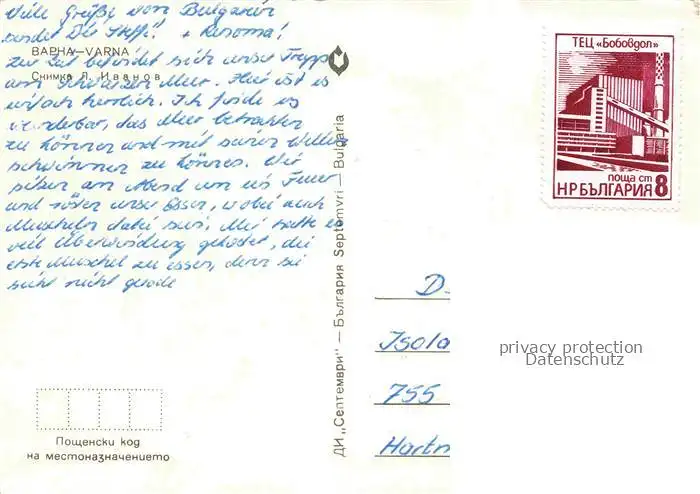 Viele Grüße von Bulgarien
sendet Dir Steffi! + Ramona!
ВАРНА—VARNA
Zur Zeit befindet sich unser Trupp
Снимка Л. Иванов
am Schwarzen Meer. Hier ist es
einfach herrlich. Ich finde es
wunderbar, das Meer betrachten
zu können und mit seinen Wellen
schwimmen zu können. Wir
sitzen am Abend um ein Feuer
und rösten unser Essen, wobei auch
Muscheln dabei sind. Mir hatte es
viel Überwindung gekostet, die
erste Muschel zu essen, denn sie
sieht nicht gerade
Пощенски код
на местоназначението
ДИ „Септември" — България Septemvri — Bulgaria
ТЕЦ «Бобовдол»
поща ст 8
НРБЪЛГАРИЯ
D
Isola
755
Hartm
privacy protection
Datenschutz